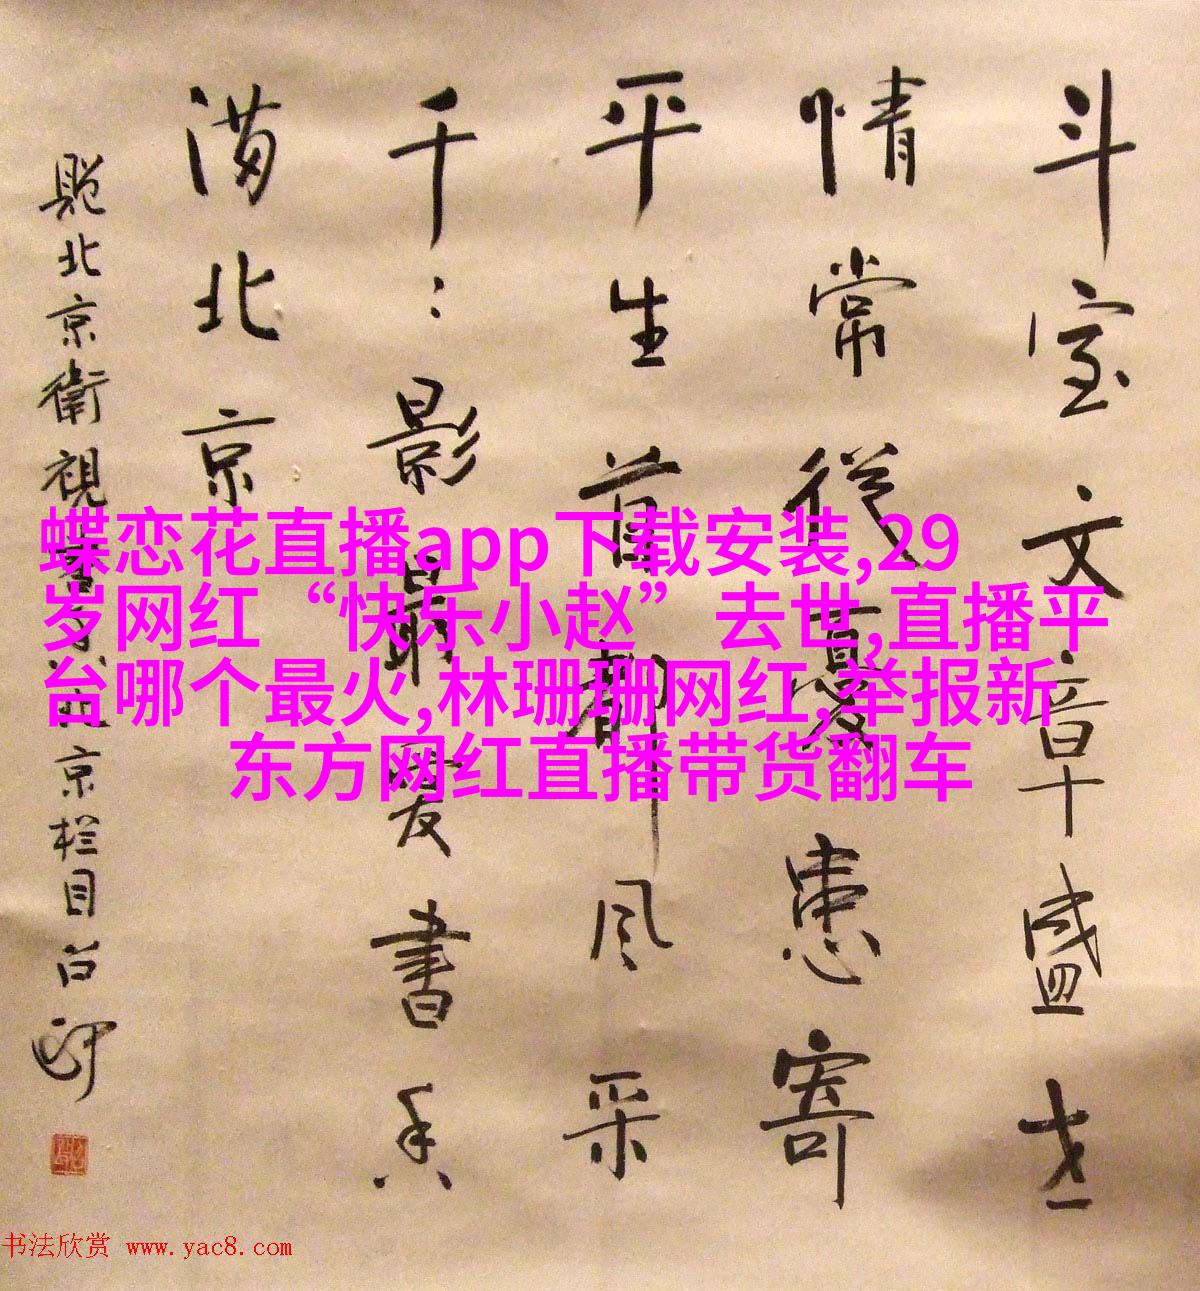 斗室文章盛世
情常從憂患寄
平生首都風采
千:影最愛書香
满北京
题北京衛視
京栏目
蝶恋花直播app下载安装,29
岁网红“快乐小赵”去世,直播平
台哪个最火,林珊珊网红,举报新
东方网红直播带货翻车
书法欣赏 www.yac8.com